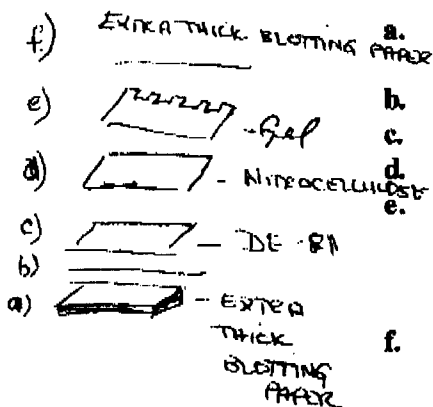 f.) EXTRA THICK BLOTTING PAPER a.
e) b.
- Gel c.
d) - NITROCELLULOSE d.
e.
c) - DE 81
b)
a) - EXTRA
THICK f.
BLOTTING
PAPER